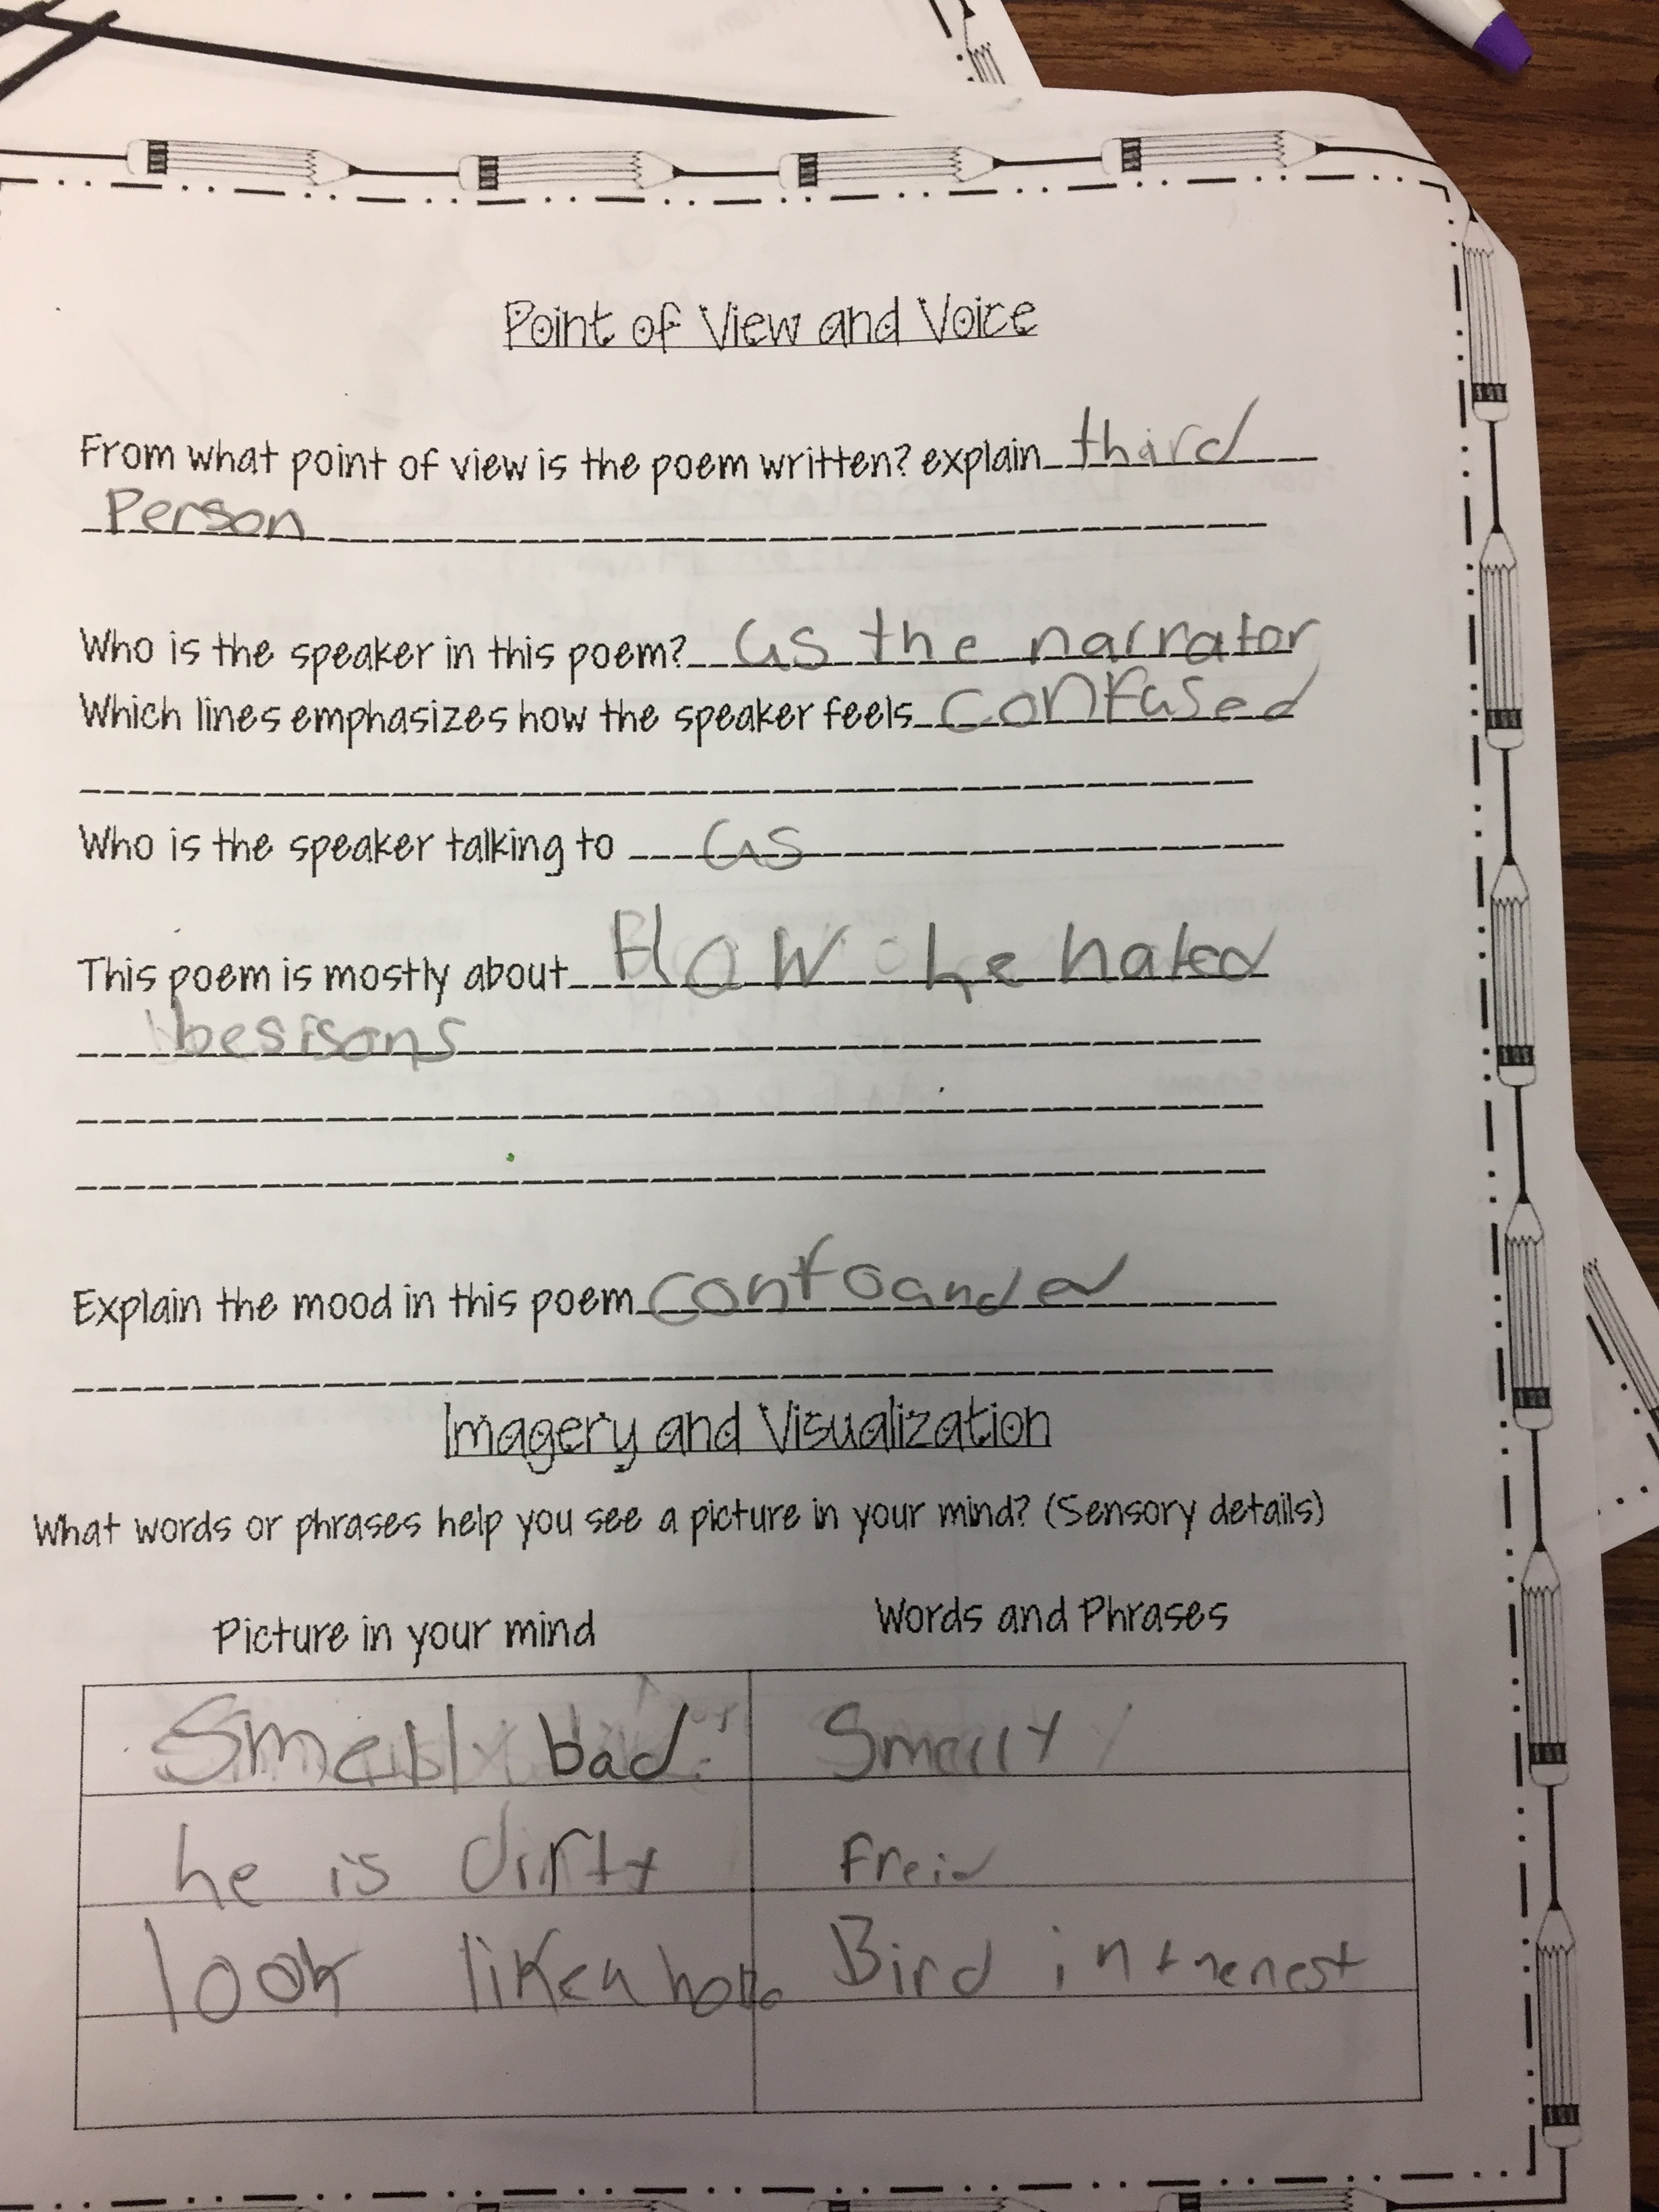 Point of View and Voice
From what point of view is the poem written? explain third
Person
Who is the speaker in this poem? us the narrator
Which lines emphasizes how the speaker feels confused
Who is the speaker talking to us
This poem is mostly about How he hated
besisons
Explain the mood in this poem confounded
Imagery and Visualization
What words or phrases help you see a picture in your mind? (Sensory details)
Picture in your mind Words and Phrases
Smell bad Smelly
he is dirty Freid
look like a hobo Bird in the nest